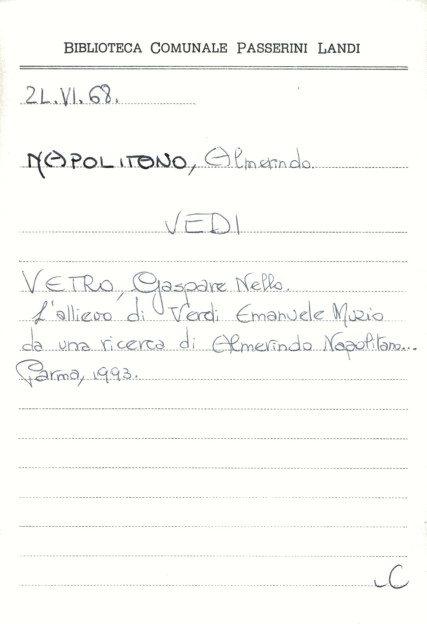 BIBLIOTECA COMUNALE PASSERINI LANDI
2L.VI.68.
NAPOLITANO, Almerindo.
VEDI
VETRO, Gaspare Nello.
L'allievo di Verdi Emanuele Muzio
da una ricerca di Almerindo Napolitano...
Parma, 1993.